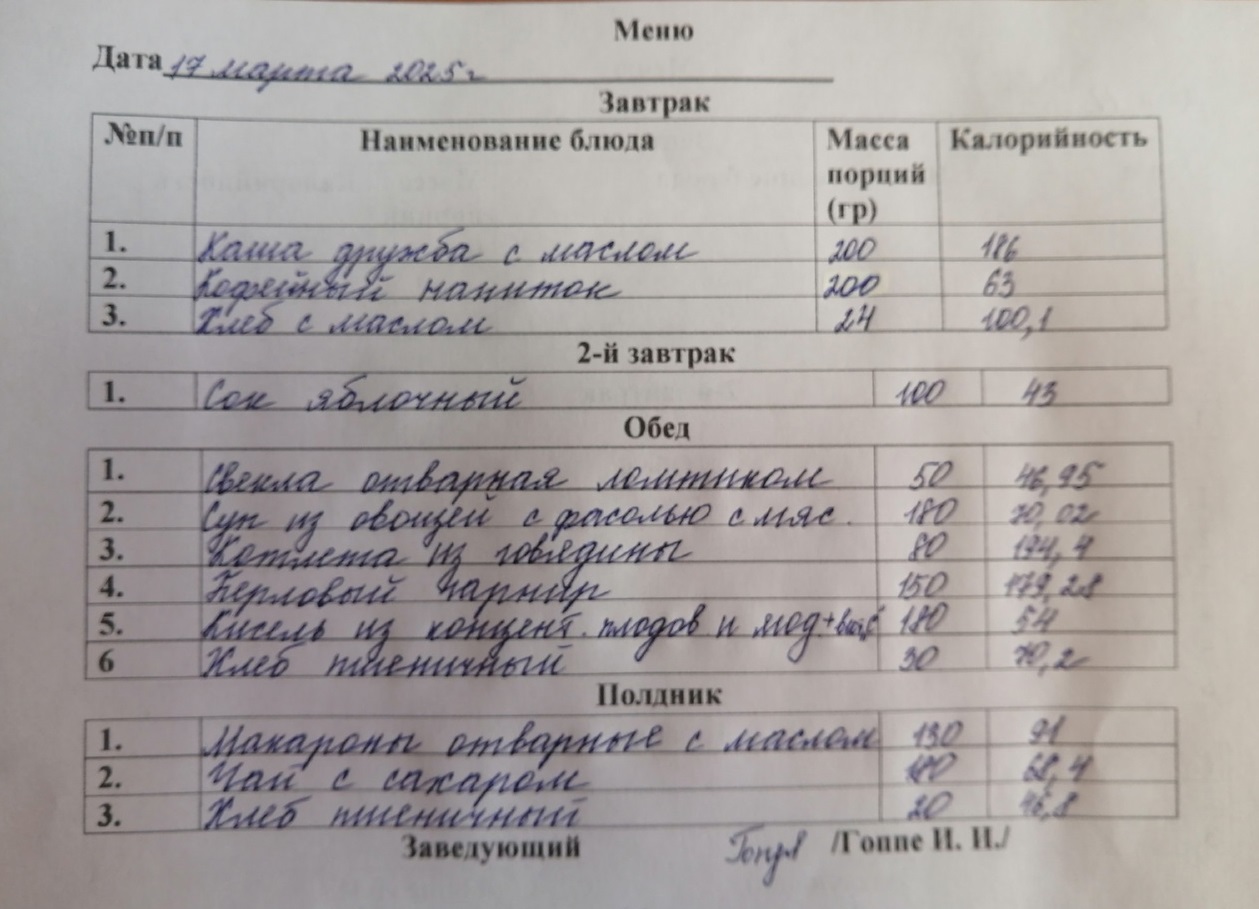 Меню
Дата 17 марта 2025 г
Завтрак
№п/п Наименование блюда Масса порций (гр) Калорийность
1. Каша дружба с маслом 200 186
2. Кофейный напиток 200 63
3. Хлеб с маслом 24 100,1
2-й завтрак
1. Сок яблочный 100 43
Обед
1. Свекла отварная ломтиком 50 46,95
2. Суп из овощей с фасолью с мяс. 180 70,02
3. Котлета из говядины 80 194,4
4. Перловый гарнир 150 179,28
5. Кисель из концент. плодов и 180 54
6 Хлеб пшеничный 30 70,2
Полдник
1. Макароны отварные с маслом 130 91
2. Чай с сахаром 180 68,4
3. Хлеб пшеничный 20 46,8
Заведующий /Гоппе И. И./